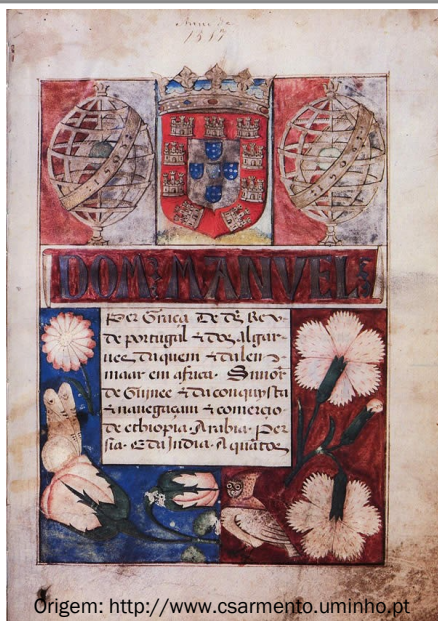 1517
DOM MANVEL
Per Graça De ds Rey
de portugal & dos algar
ues daquem & dalem
maar em africa. Snnor
de Guinee & da conquysta
& nauegaçam & comercio
de ethiopia. Arabia. Per
sia. E da India. A quātos
Origem: http://www.csarmento.uminho.pt